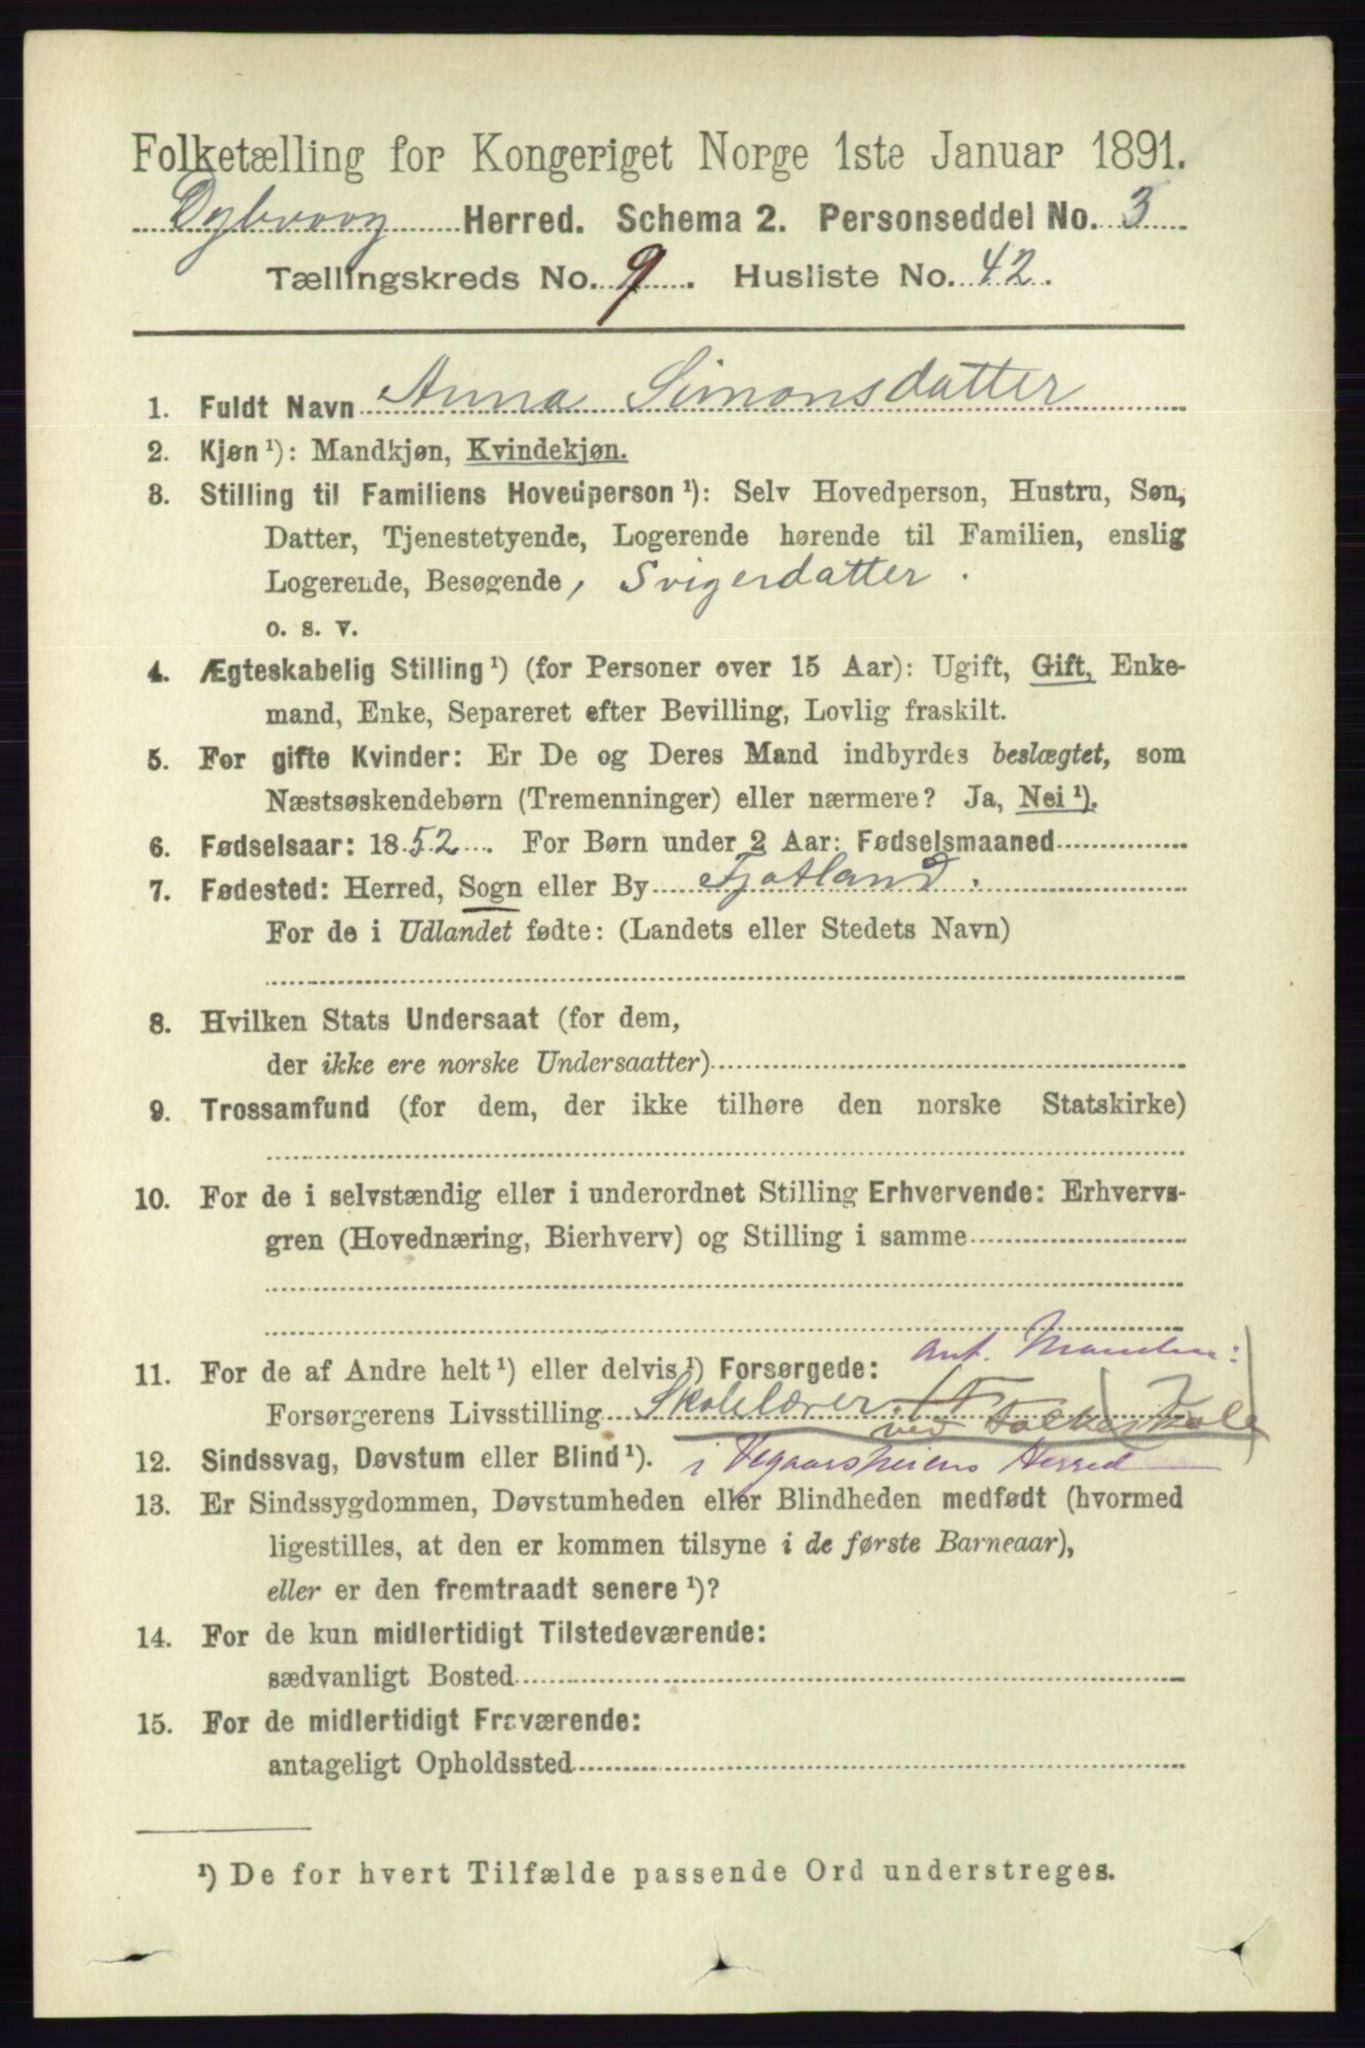 Folketælling for Kongeriget Norge 1ste Januar 1891.
Dybvaag Herred. Schema 2. Personseddel No. 3
Tællingskreds No. 9. Husliste No. 42.
1. Fuldt Navn Anna Simonsdatter
2. Kjøn ¹): Mandkjøn, Kvindekjøn.
3. Stilling til Familiens Hovedperson ¹): Selv Hovedperson, Hustru, Søn,
Datter, Tjenestetyende, Logerende hørende til Familien, enslig
Logerende, Besøgende, Svigerdatter.
o. s. v.
4. Ægteskabelig Stilling ¹) (for Personer over 15 Aar): Ugift, Gift, Enke-
mand, Enke, Separeret efter Bevilling, Lovlig fraskilt.
5. For gifte Kvinder: Er De og Deres Mand indbyrdes beslægtet, som
Næstsøskendebørn (Tremenninger) eller nærmere? Ja, Nei ¹).
6. Fødselsaar: 1852. For Børn under 2 Aar: Fødselsmaaned
7. Fødested: Herred, Sogn eller By Fjotland.
For de i Udlandet fødte: (Landets eller Stedets Navn)
8. Hvilken Stats Undersaat (for dem,
der ikke ere norske Undersaatter)
9. Trossamfund (for dem, der ikke tilhøre den norske Statskirke)
10. For de i selvstændig eller i underordnet Stilling Erhvervende: Erhvervs-
gren (Hovednæring, Bierhverv) og Stilling i samme
ant. Manden:
11. For de af Andre helt ¹) eller delvis ¹) Forsørgede:
Forsørgerens Livsstilling Skolelærer.
ved Folkeskole
12. Sindssvag, Døvstum eller Blind ¹). i Vegaarsheiens Herred
13. Er Sindssygdommen, Døvstumheden eller Blindheden medfødt (hvormed
ligestilles, at den er kommen tilsyne i de første Barneaar),
eller er den fremtraadt senere ¹)?
14. For de kun midlertidigt Tilstedeværende:
sædvanligt Bosted
15. For de midlertidigt Fraværende:
antageligt Opholdssted
¹) De for hvert Tilfælde passende Ord understreges.